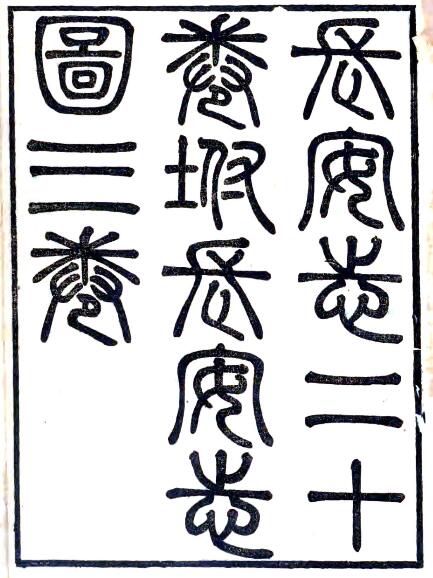 長安志二十
卷坿長安志
圖三卷